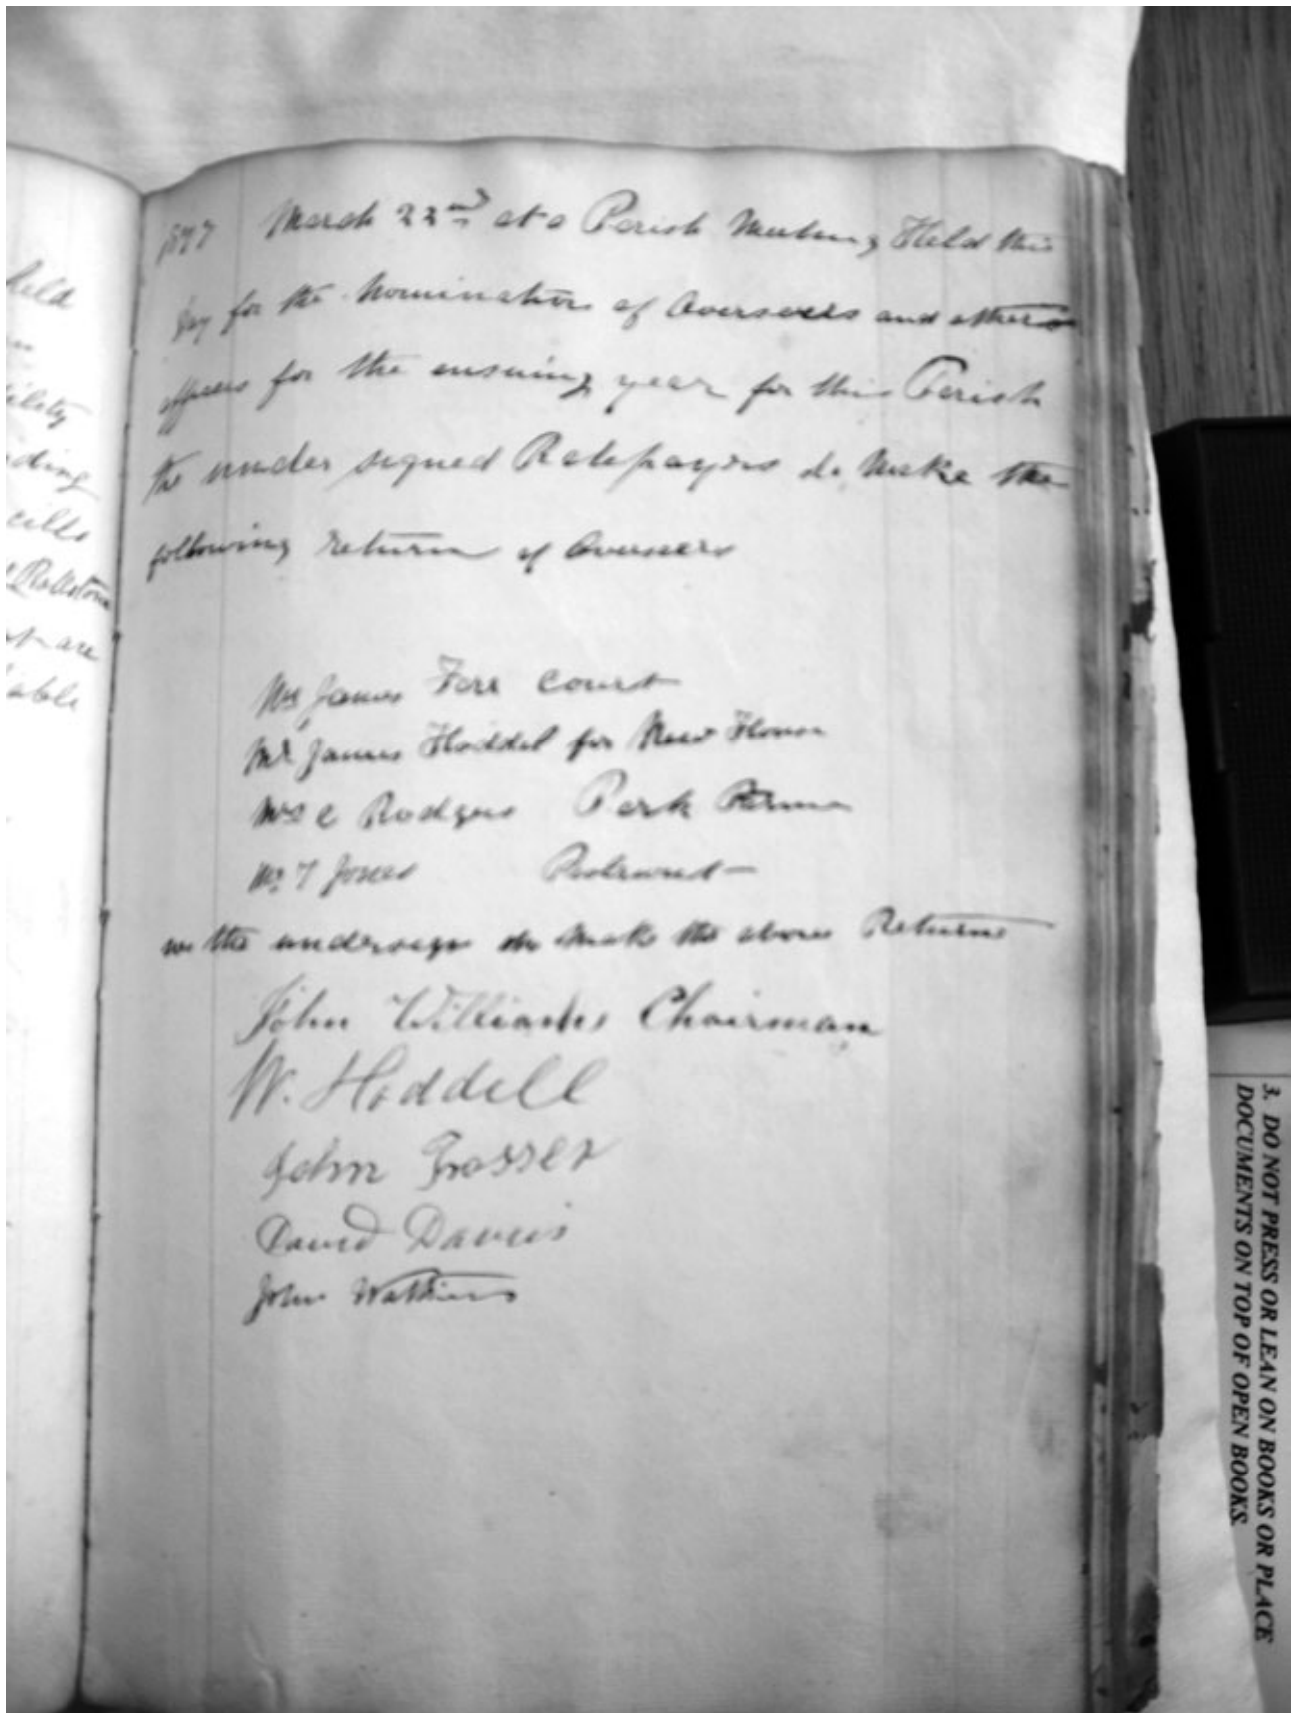 held
ility
ding
cills
Rollstone
at are
able
1877 March 22nd at a Parish Meeting Held this
Day for the Nomination of Overseers and others
officers for the ensuing year for this Parish
the under signed Ratepayers do Make the
following return of Overseers
Mr James Farr Court
Mr James Hoddel for New House
Mrs E Rodgers Park
Mr T Jones
we the undersign do Make the above Returns
John Williams Chairman
W. Hoddell
John Prosser
David Davies
John Watkins
3. DO NOT PRESS OR LEAN ON BOOKS OR PLACE
DOCUMENTS ON TOP OF OPEN BOOKS.